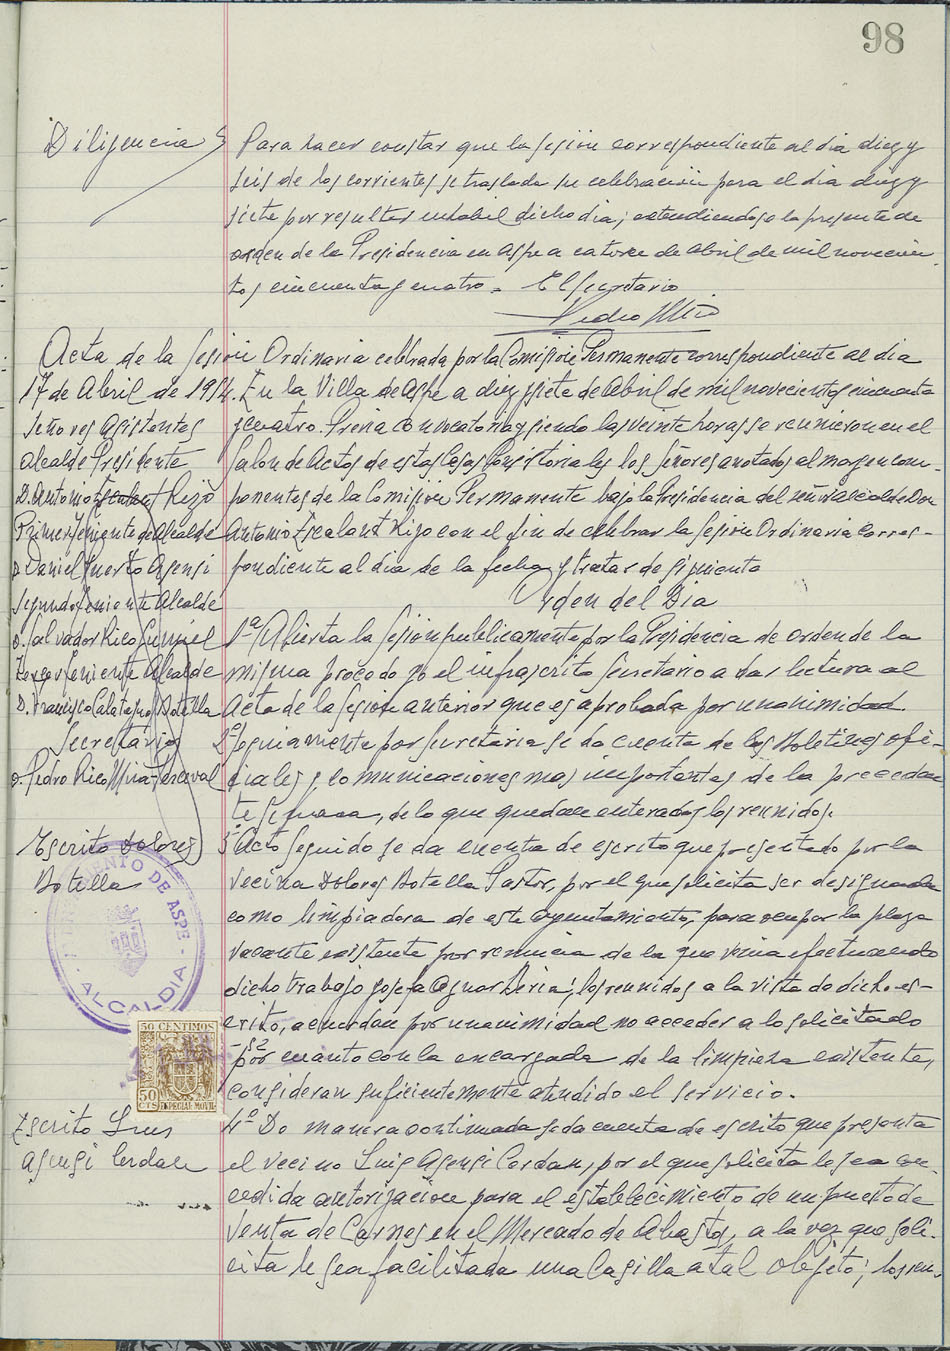 98
Diligencia } Para hacer constar que la sesión correspondiente al dia diez y
seis de los corrientes se traslada su celebración para el dia diez y
siete por resultar inhabil dicho dia; extendiendose la presente de
orden de la Presidencia en Aspe a catorce de Abril de mil novecien-
tos cincuenta y cuatro.- El Secretario
Pedro Miró
Acta de la Sesión Ordinaria celebrada por la Comisión Permanente correspondiente al dia
17 de Abril de 1954. En la Villa de Aspe a diez y siete de Abril de mil novecientos cincuenta
Señores Asistentes
y cuatro. Previa convocatoria y siendo las veinte horas se reunieron en el
Alcalde Presidente
Salon de Actos de estas Casas Consistoriales los Señores anotados al margen com-
D. Antonio Escalant Rizo
ponentes de la Comisión Permanente bajo la Presidencia del señor Alcalde Don
Primer Teniente de Alcalde
Antonio Escalant Rizo con el fin de celebrar la Sesión Ordinaria corres-
D. Daniel Puerto Asensi
pondiente al dia de la fecha y tratar de siguiente
Segundo Teniente Alcalde
Orden del Dia
D. Salvador Rico
1ª Abierta la Sesión publicamente por la Presidencia de orden de la
Tercer Teniente Alcalde
misma procedo yo el infrascrito Secretario a dar lectura al
D. Francisco Calatayud Botella
Acta de la Sesión anterior que es aprobada por unanimidad
Secretario
2º Seguidamente por Secretaria se da cuenta de los Boletines ofi-
D. Pedro Rico Mira-Perceval
ciales y comunicaciones mas importantes de la preceden-
te semana, de lo que quedan enterados los reunidos.
Escrito Dolores
Botella
3º Acto seguido se da cuenta de escrito que presentado por la
vecina Dolores Botella Pastor, por el que solicita ser designada
como limpiadora de este Ayuntamiento, para ocupar la plaza
vacante existente por renuncia de la que venia efectuando
dicho trabajo Josefa; los reunidos a la vista de dicho es-
crito, acuerdan por unanimidad no acceder a lo solicitado
por cuanto con la encargada de la limpieza existente,
consideran suficientemente atendido el servicio.
AYUNTAMIENTO DE ASPE - ALCALDIA -
50 CENTIMOS
50 CTS ESPECIAL MOVIL
Escrito Luis
Asensi Cerdan
4º De manera continuada se da cuenta de escrito que presenta
el vecino Luis Asensi Cerdan, por el que solicita le sea con-
cedida autorización para el establecimiento de un puesto de
Venta de Carnes en el Mercado de Abastos, a la vez que soli-
cita le sea facilitada una Casilla a tal objeto; los reu-